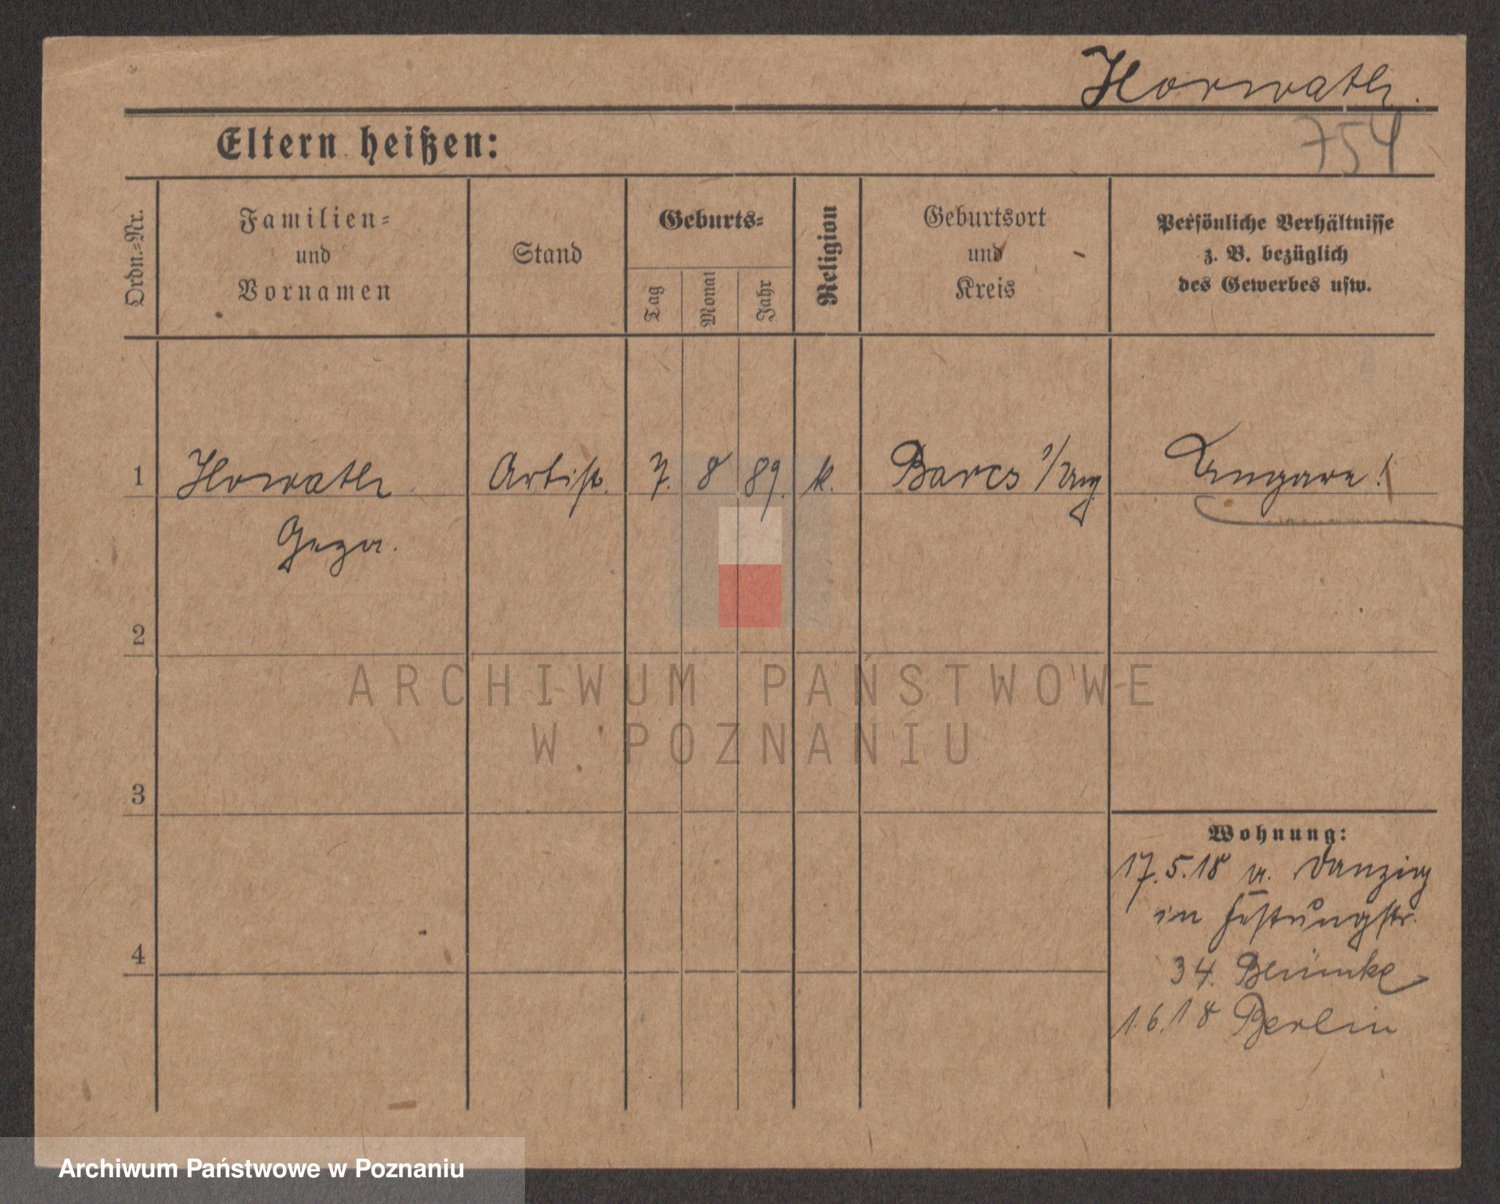 Horwath.
Eltern heißen:
754
Ordn.-Nr.
Familien-
und
Vornamen
Stand
Geburts-
Tag
Monat
Jahr
Religion
Geburtsort
und
Kreis
Persönliche Verhältnisse
z. B. bezüglich
des Gewerbes usw.
1
Horwath
Artist.
7.
8
89.
k.
Barcs i/Ung
Ungarn!
Geza.
2
ARCHIWUM PAŃSTWOWE
W POZNANIU
3
Wohnung:
17.5.18 v. Danzig
in Festungstr.
4
34. Blümke
1.6.18 Berlin
Archiwum Państwowe w Poznaniu